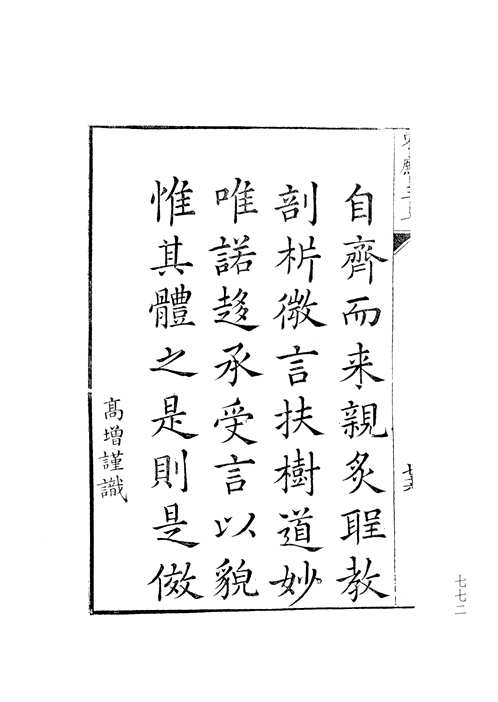 自齊而来親炙聖教
剖析微言扶樹道妙
唯諾趍承受言以貌
惟其體之是則是傚
髙增謹識
七七二